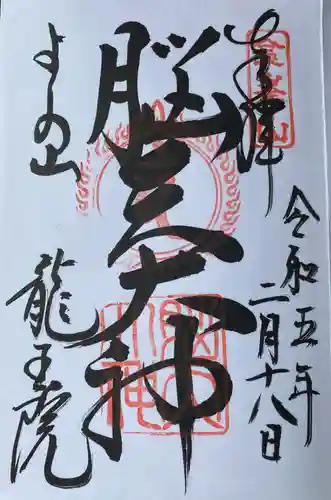 奉拝
令和五年
二月十八日
脳天大神
よしの山
龍王院